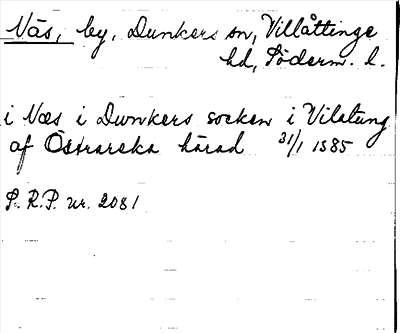 Näs, by, Dunkers sn, Villåttinge
hd, Söderm. l.
i Næs i Dwnkers socken i Vilatung
af Östrareka härad 31/1 1385
S. R. P. nr. 2081